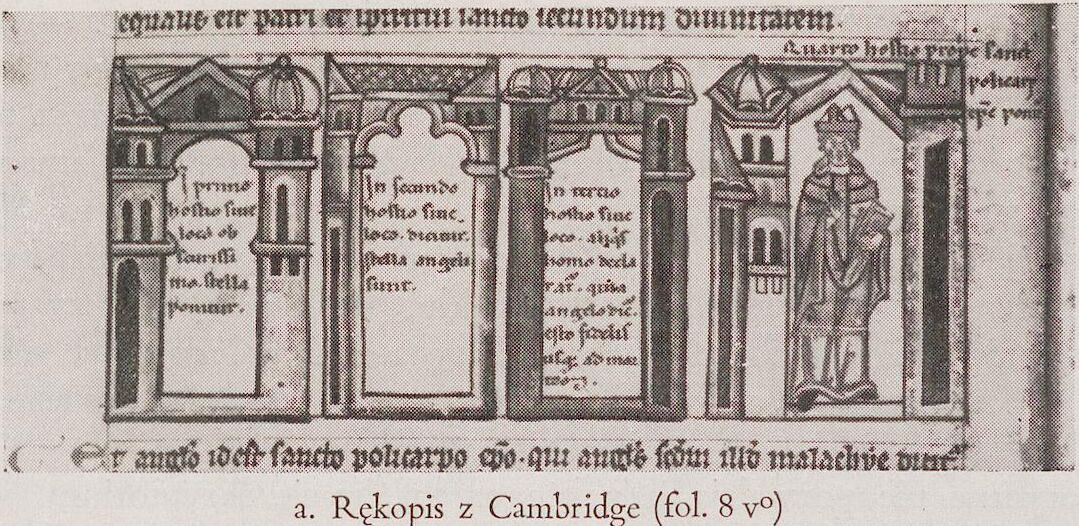 equalis est patri et spiritui sancto secundum diuinitatem.
Quarto hostio prope sancti
policarpi
In primo
hostio siue
loco ob
scurissi
ma stella
ponitur.
In secundo
hostio siue
loco. dicitur.
stella angeli
sunt.
In tertio
hostio siue
loco.
homo decla
rat. quia
angelo dic̄.
esto fidelis
usq; ad mor
tem.
angl̄o idest sancto policarpo ep̄o. qui angl̄s sc̄dm illd̄ malachye dicitr̄
a. Rękopis z Cambridge (fol. 8 vº)